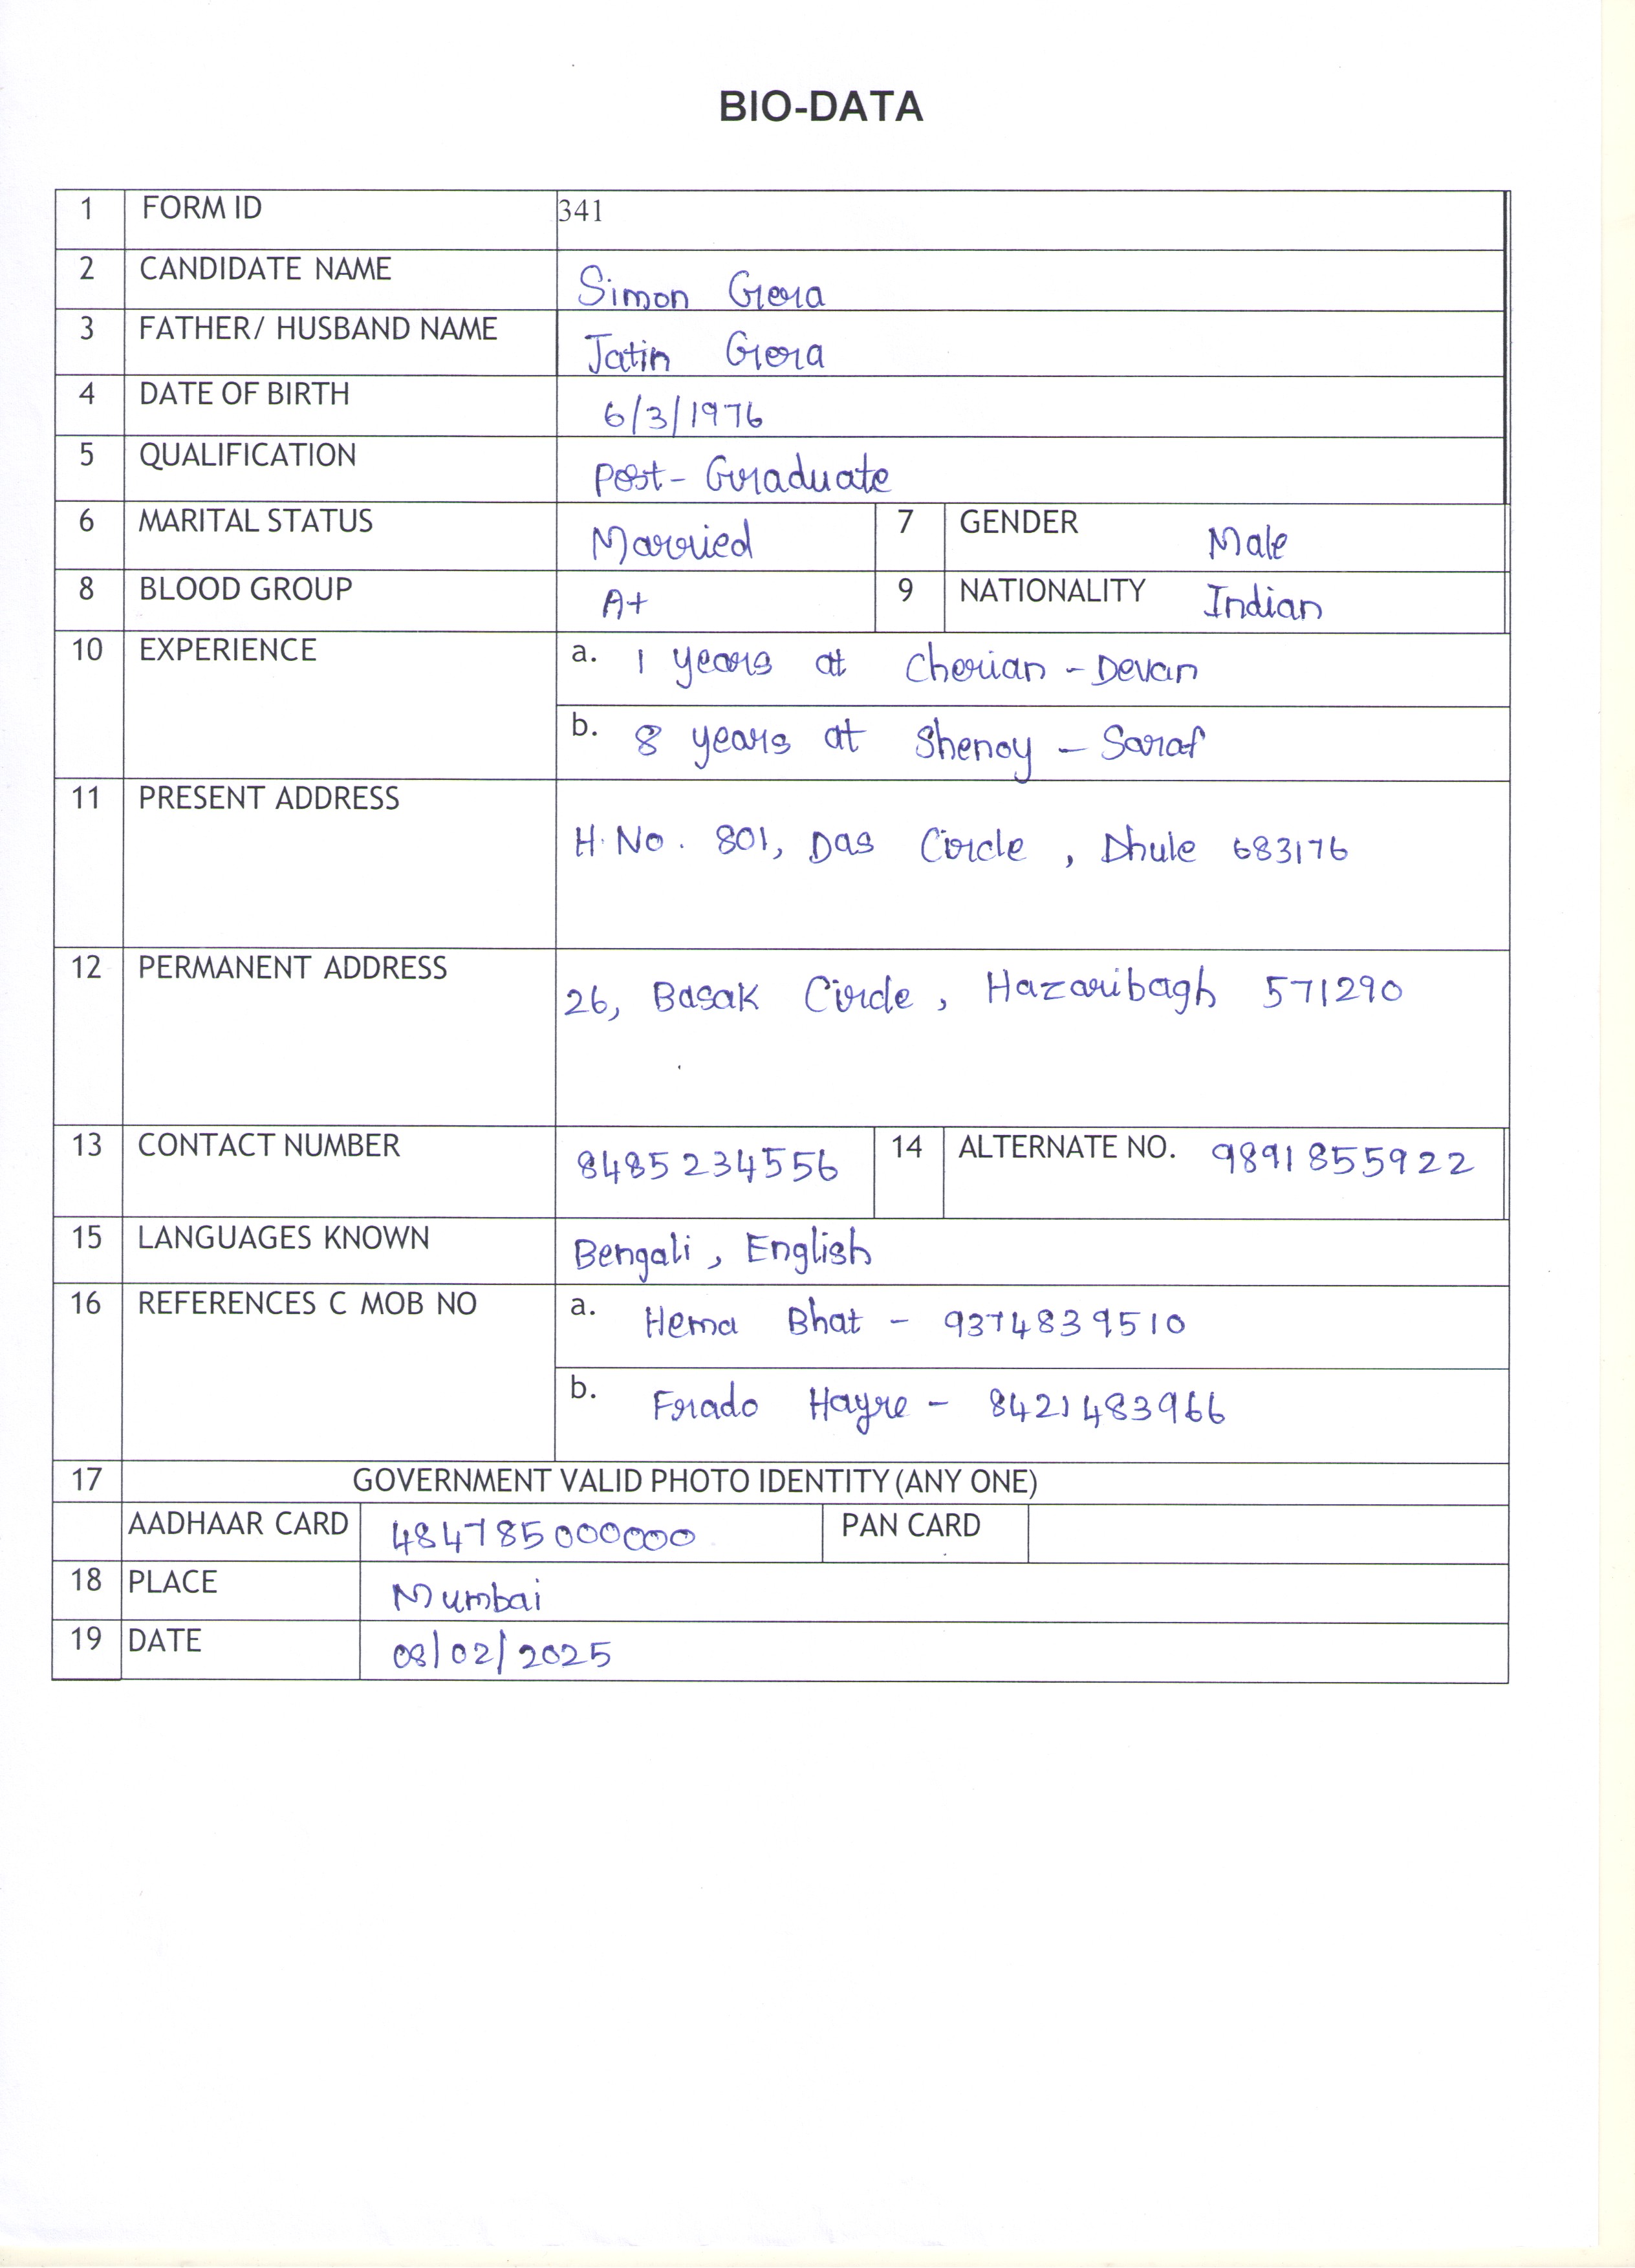 BIO-DATA
1 FORM ID 341
2 CANDIDATE NAME Simon Gera
3 FATHER/ HUSBAND NAME Jatin Gera
4 DATE OF BIRTH 6/3/1976
5 QUALIFICATION Post-Graduate
6 MARITAL STATUS Married 7 GENDER Male
8 BLOOD GROUP A+ 9 NATIONALITY Indian
10 EXPERIENCE a. 1 years at Cherian - Devan
b. 8 years at Shenoy - Saraf
11 PRESENT ADDRESS
H. No. 801, Das Circle, Dhule 683176
12 PERMANENT ADDRESS
26, Basak Circle, Hazaribagh 571290
13 CONTACT NUMBER 8485234556 14 ALTERNATE NO. 9891855922
15 LANGUAGES KNOWN Bengali, English
16 REFERENCES C MOB NO a. Hema Bhat - 9374839510
b. Frado Hayre - 8421483966
17 GOVERNMENT VALID PHOTO IDENTITY (ANY ONE)
AADHAAR CARD 484785000000 PAN CARD
18 PLACE Mumbai
19 DATE 08/02/2025